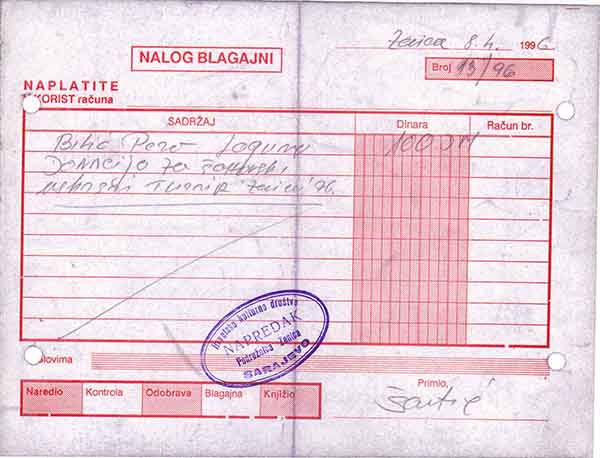 NALOG BLAGAJNI
Zenica 8.4. 1996
Broj 13/96
NAPLATITE
KORIST računa
SADRŽAJ Dinara Račun br.
Bilić Pero 100 DM
Donacija za šahovski
uskrsni Turnir Zenica '96.
Hrvatsko kulturno društvo
NAPREDAK
Podružnica Zenica
SARAJEVO
lovima
Naredio Kontrola Odobrava Blagajna Knjižio
Primio,